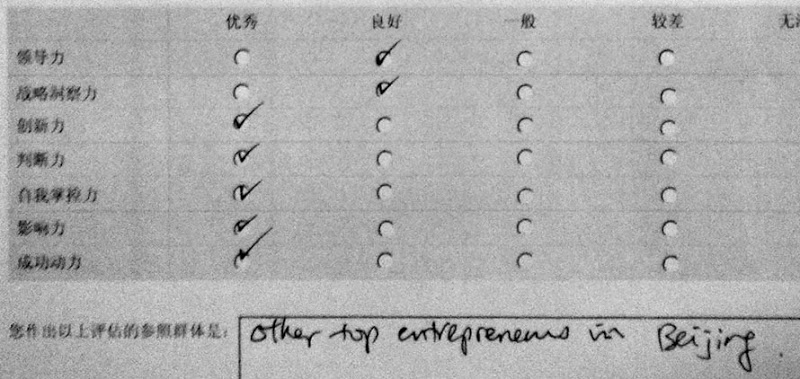 优秀 良好 一般 较差 无法
领导力
战略洞察力
创新力
判断力
自我掌控力
影响力
成功动力
您作出以上评估的参照群体是: other top entrepreneurs in Beijing.